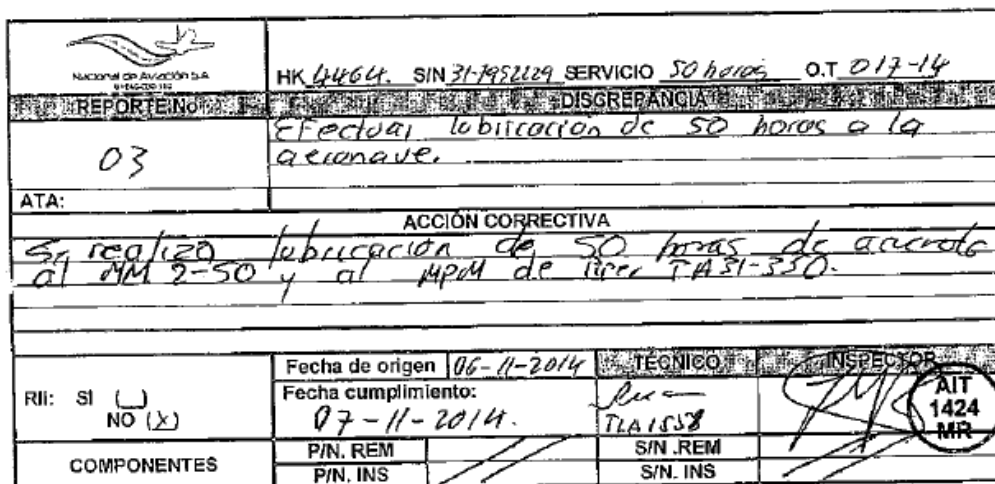 Nacional de Aviación S.A
HK 4464. S/N 31-7952229 SERVICIO 50 horas O.T 017-14
REPORTE No. DISCREPANCIA
03
Efectuar lubricacion de 50 horas a la
aeronave.
ATA:
ACCIÓN CORRECTIVA
Se realizo lubricación de 50 horas de acuerdo
al MM 2-50 y al MPM de Piper PA31-350.
RII: SI (_)
NO (X)
Fecha de origen 06-11-2014 TÉCNICO INSPECTOR
Fecha cumplimiento:
07-11-2014.
TLA1558
AIT
1424
MR
COMPONENTES
P/N. REM S/N .REM
P/N. INS S/N. INS